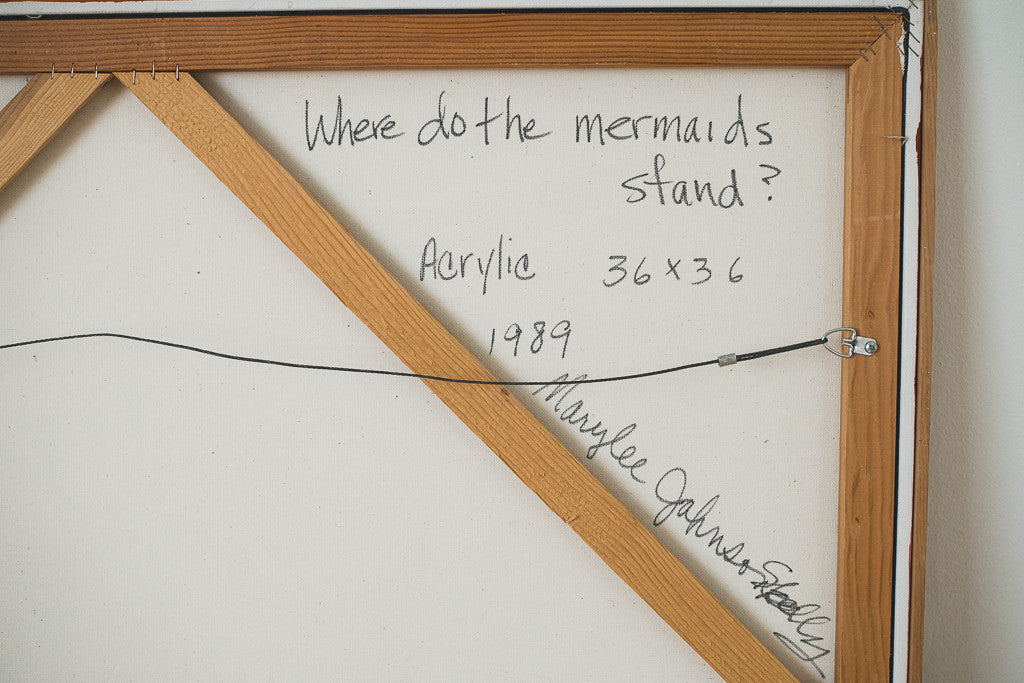 Where do the mermaids
stand?
Acrylic 36x36
1989
Marylee Johnson